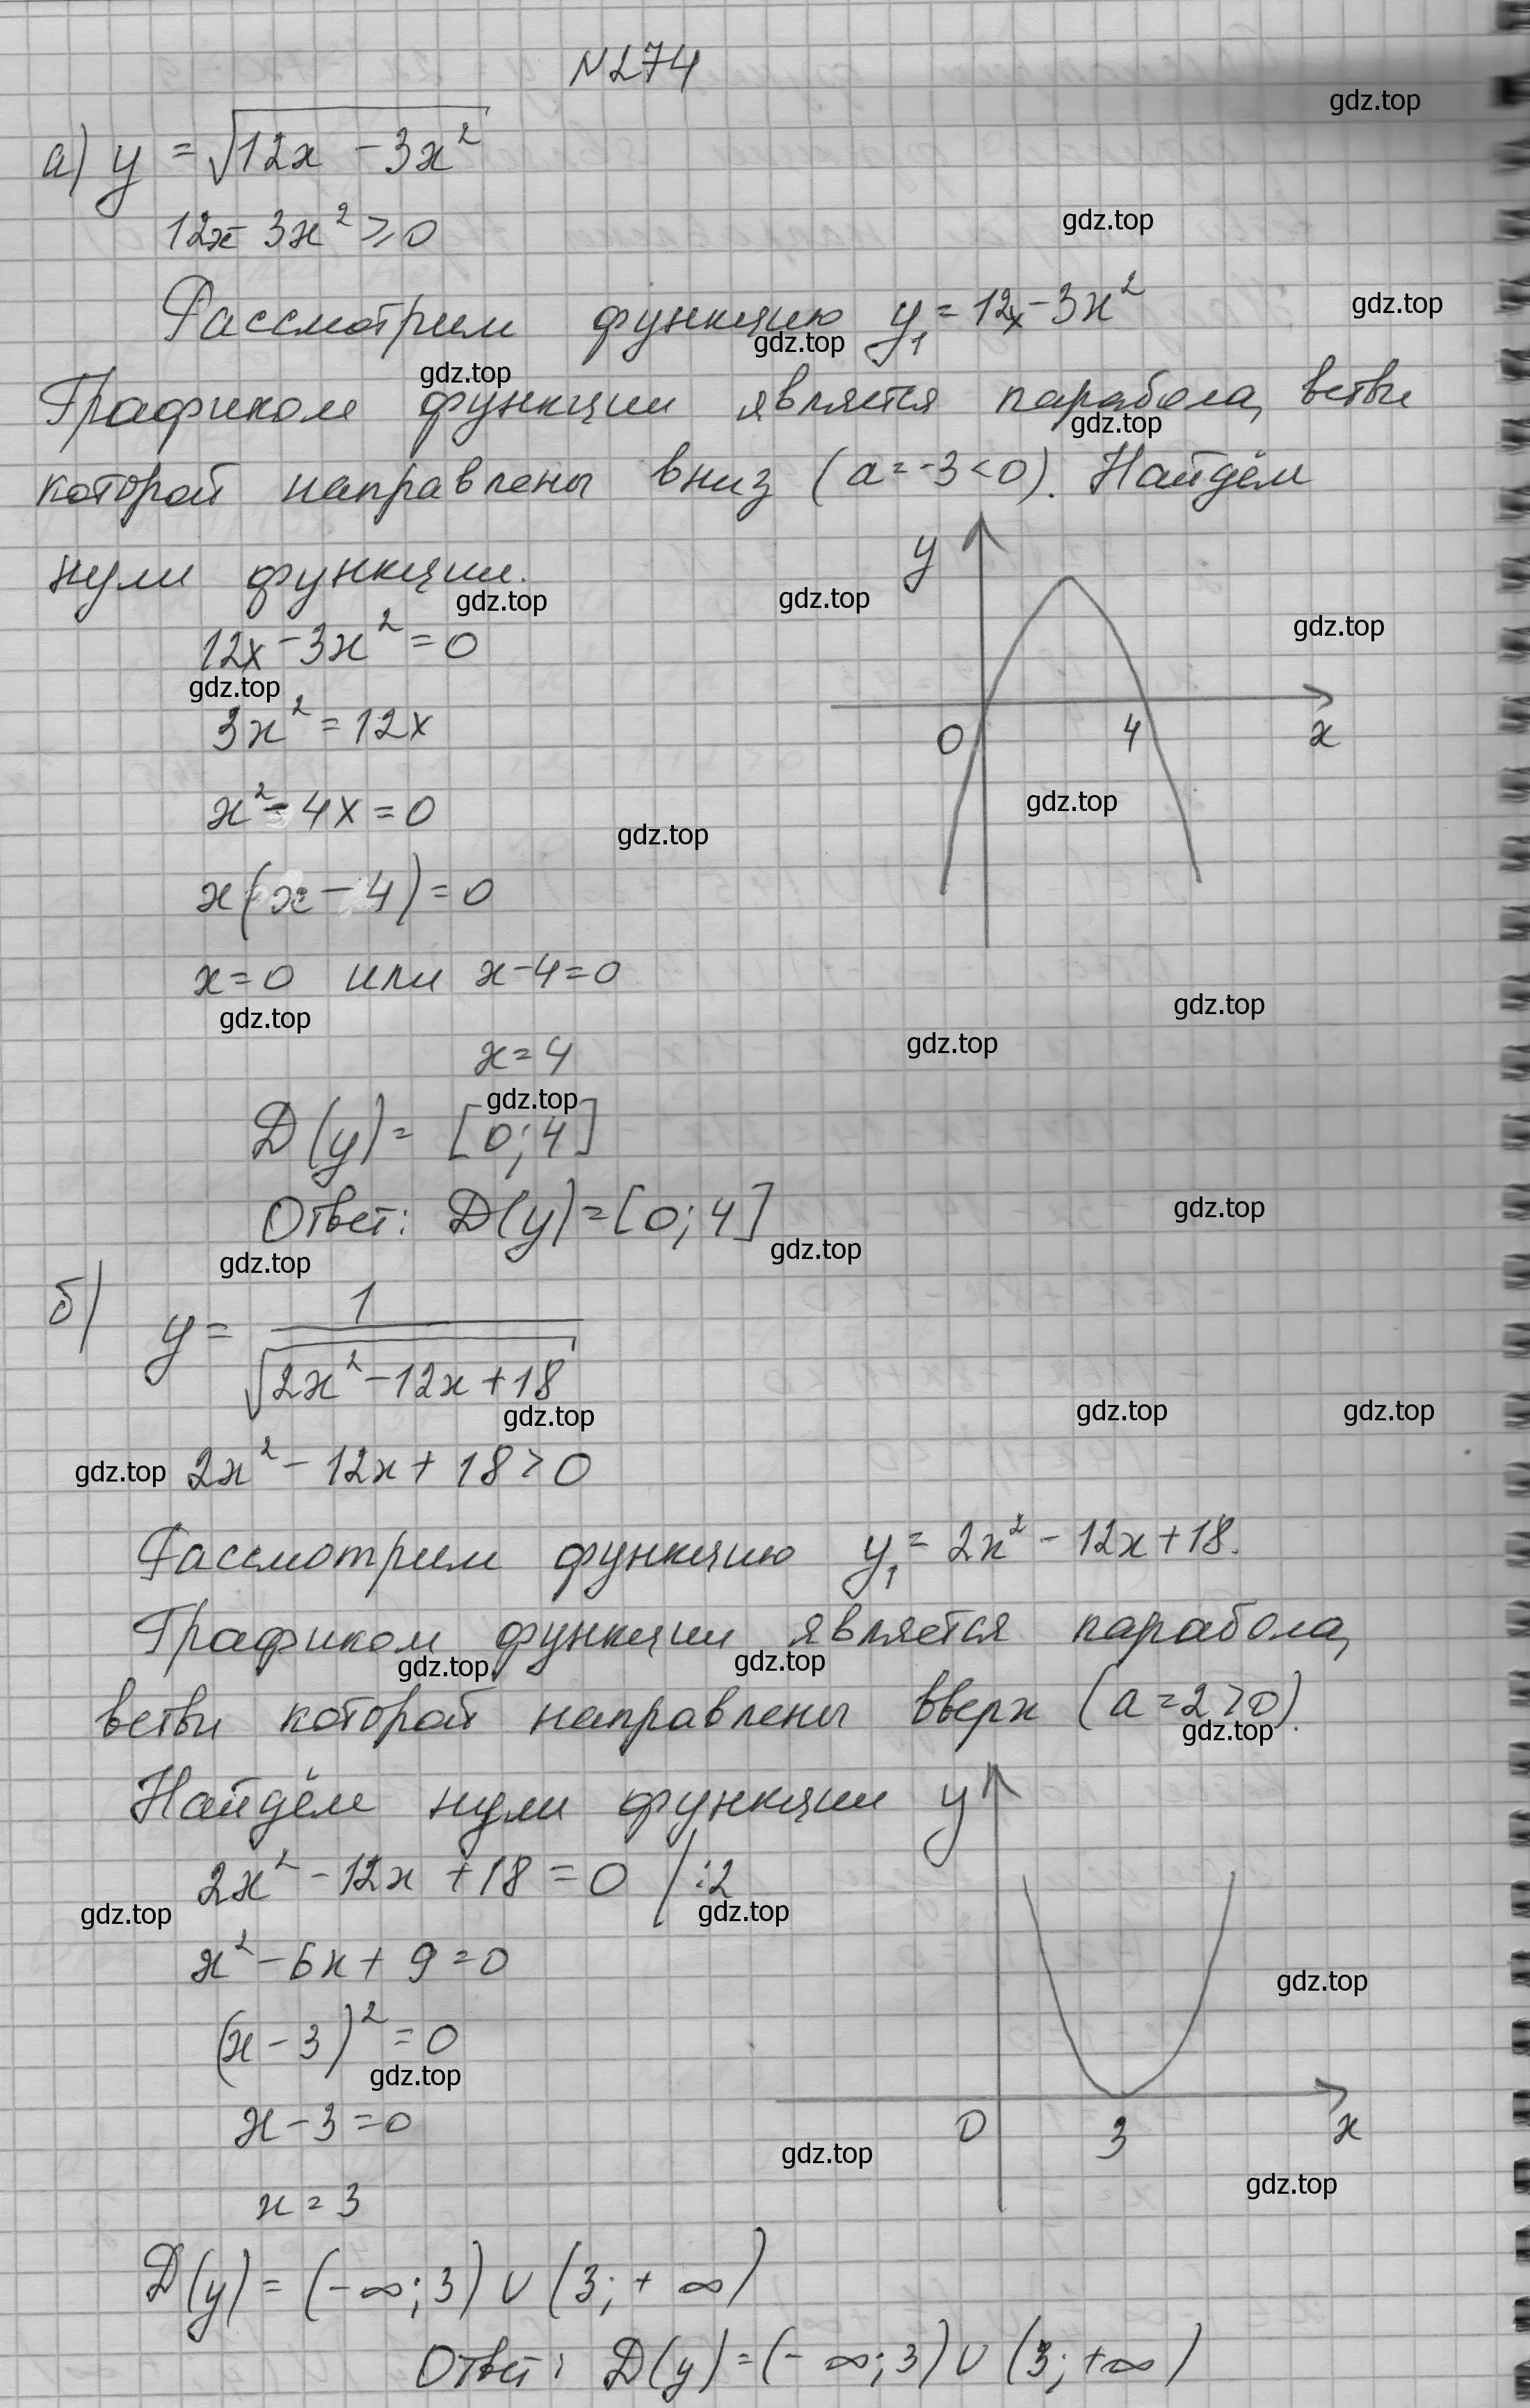 N274
gdz.top
а) y = √(12x - 3x²)
12x - 3x² ≥ 0
gdz.top
Рассмотрим функцию y₁ = 12x - 3x²
gdz.top
gdz.top
gdz.top
Графиком функции является парабола, ветви
gdz.top
которой направлены вниз (a = -3 < 0). Найдём
нули функции.
y
gdz.top
gdz.top
gdz.top
12x - 3x² = 0
gdz.top
3x² = 12x
0 4 x
x² - 4x = 0
gdz.top
gdz.top
x(x - 4) = 0
x = 0 или x - 4 = 0
gdz.top
gdz.top
gdz.top
x = 4
gdz.top
D(y) = [0; 4]
Ответ: D(y) = [0; 4]
gdz.top
gdz.top
gdz.top
б) y = 1/√(2x² - 12x + 18)
gdz.top
gdz.top
gdz.top
gdz.top
2x² - 12x + 18 > 0
Рассмотрим функцию y₁ = 2x² - 12x + 18.
Графиком функции является парабола,
gdz.top
gdz.top
ветви которой направлены вверх (a = 2 > 0).
gdz.top
Найдём нули функции
y
2x² - 12x + 18 = 0 /:2
gdz.top
gdz.top
x² - 6x + 9 = 0
gdz.top
(x - 3)² = 0
gdz.top
x - 3 = 0
0 3 x
gdz.top
gdz.top
x = 3
D(y) = (-∞; 3) ∪ (3; +∞)
Ответ: D(y) = (-∞; 3) ∪ (3; +∞)